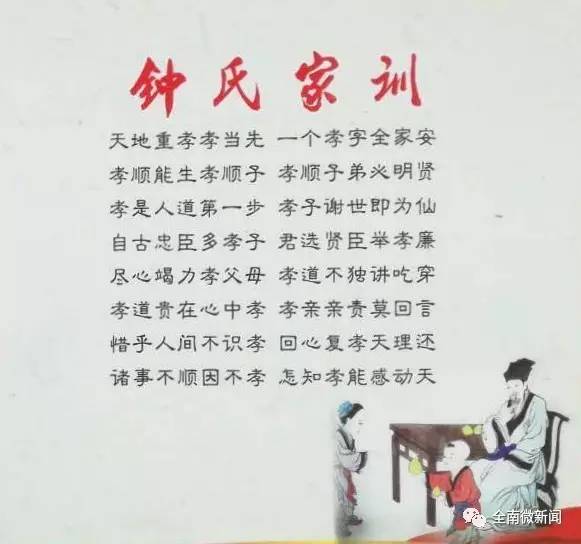 钟氏家训
天地重孝孝当先 一个孝字全家安
孝顺能生孝顺子 孝顺子弟必明贤
孝是人道第一步 孝子谢世即为仙
自古忠臣多孝子 君选贤臣举孝廉
尽心竭力孝父母 孝道不独讲吃穿
孝道贵在心中孝 孝亲亲责莫回言
惜乎人间不识孝 回心复孝天理还
诸事不顺因不孝 怎知孝能感动天
全南微新闻